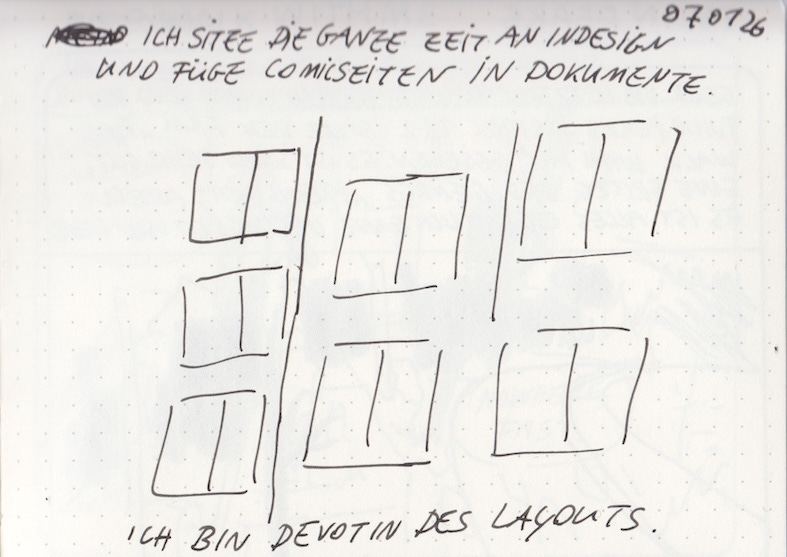 070126
ICH SITZE DIE GANZE ZEIT AN INDESIGN
UND FÜGE COMICSEITEN IN DOKUMENTE.
ICH BIN DEVOTIN DES LAYOUTS.